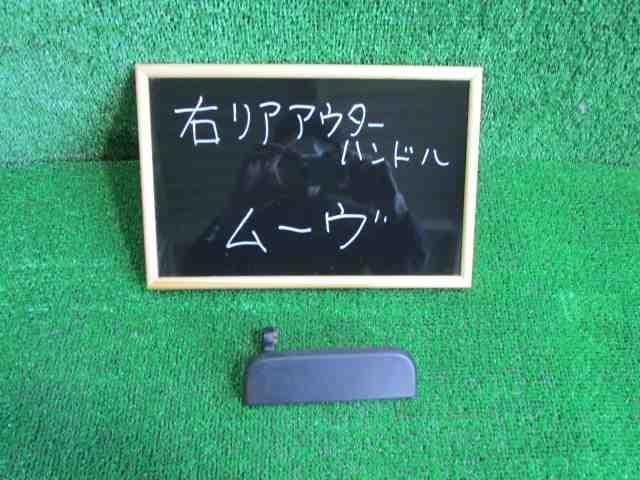 右リアアウター
ハンドル
ムーヴ